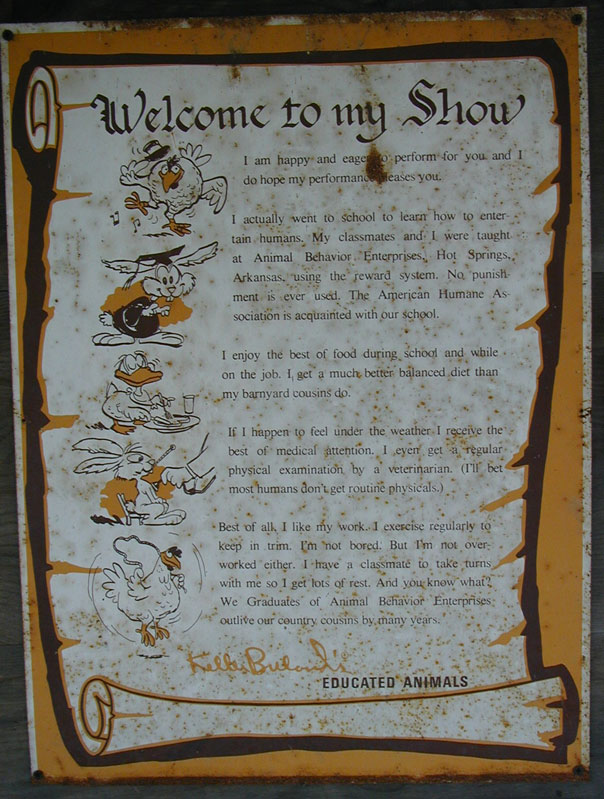 Welcome to my Show
I am happy and eager to perform for you and I
do hope my performance pleases you.
I actually went to school to learn how to enter-
tain humans. My classmates and I were taught
at Animal Behavior Enterprises, Hot Springs,
Arkansas, using the reward system. No punish-
ment is ever used. The American Humane As-
sociation is acquainted with our school.
I enjoy the best of food during school and while
on the job. I get a much better balanced diet than
my barnyard cousins do.
If I happen to feel under the weather I receive the
best of medical attention. I even get a regular
physical examination by a veterinarian. (I'll bet
most humans don't get routine physicals.)
Best of all, I like my work. I exercise regularly to
keep in trim. I'm not bored. But I'm not over-
worked either. I have a classmate to take turns
with me so I get lots of rest. And you know what?
We Graduates of Animal Behavior Enterprises
outlive our country cousins by many years.
EDUCATED ANIMALS